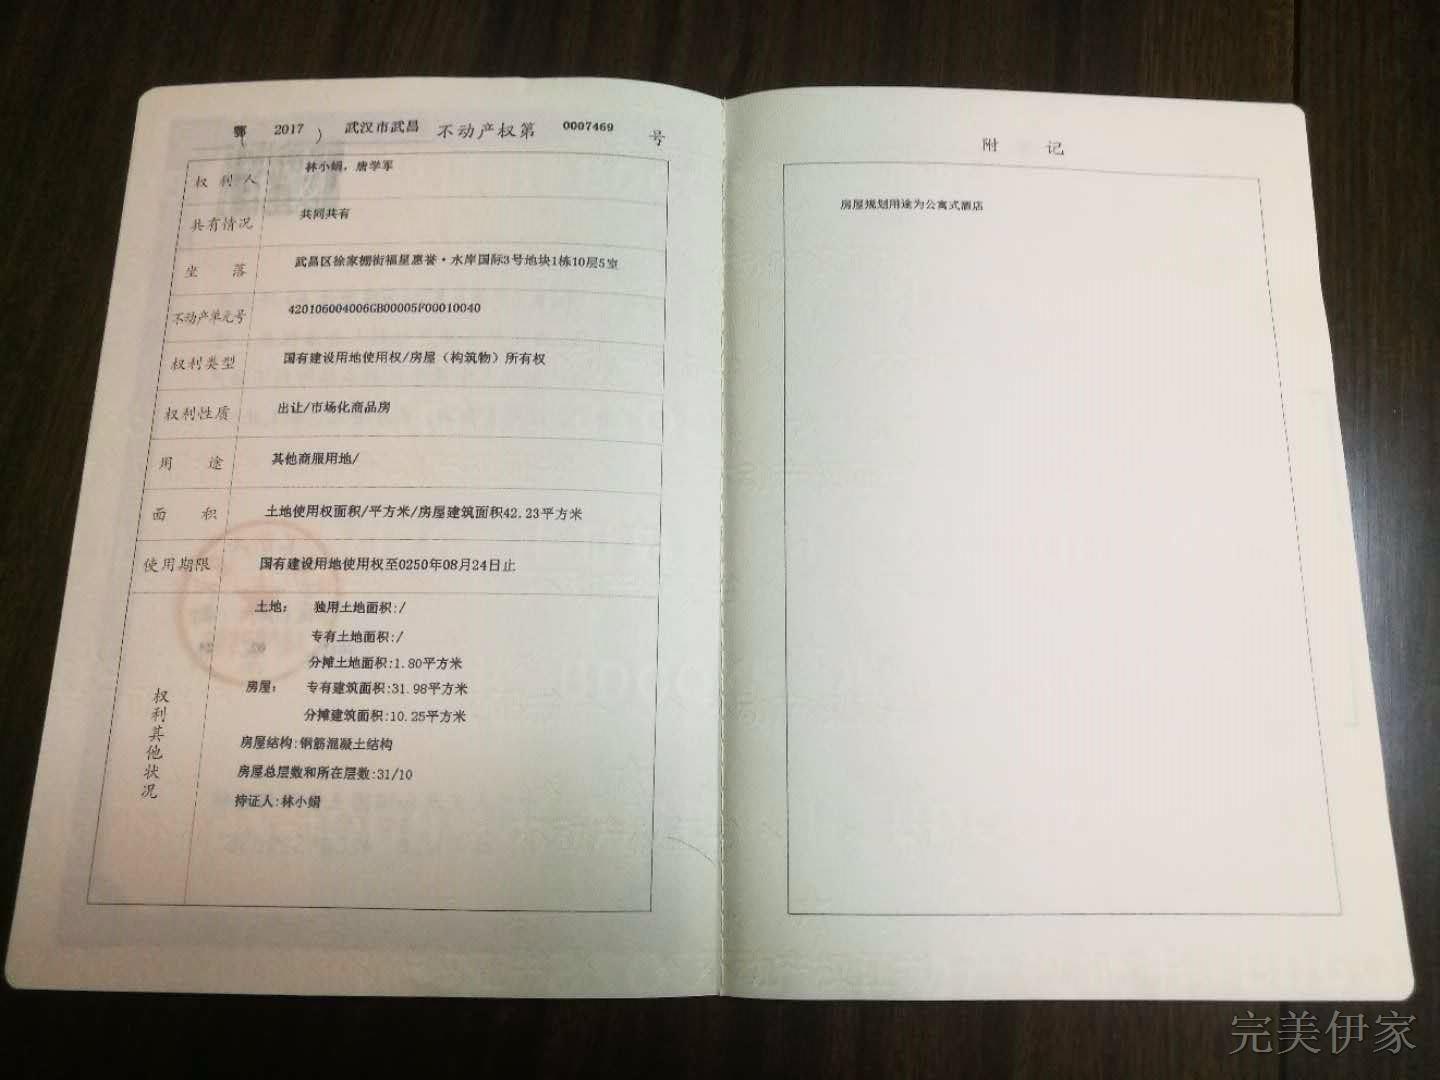 鄂（2017）武汉市武昌不动产权第0007469号
权利人 林小娟，唐学军
共有情况 共同共有
坐落 武昌区徐家棚街福星惠誉·水岸国际3号地块1栋10层5室
不动产单元号 420106004006GB00005F00010040
权利类型 国有建设用地使用权/房屋（构筑物）所有权
权利性质 出让/市场化商品房
用途 其他商服用地/
面积 土地使用权面积/平方米/房屋建筑面积42.23平方米
使用期限 国有建设用地使用权至0250年08月24日止
权利其他状况
土地： 独用土地面积:/
专有土地面积:/
分摊土地面积:1.80平方米
房屋： 专有建筑面积:31.98平方米
分摊建筑面积:10.25平方米
房屋结构:钢筋混凝土结构
房屋总层数和所在层数:31/10
持证人:林小娟
附记
房屋规划用途为公寓式酒店
完美伊家